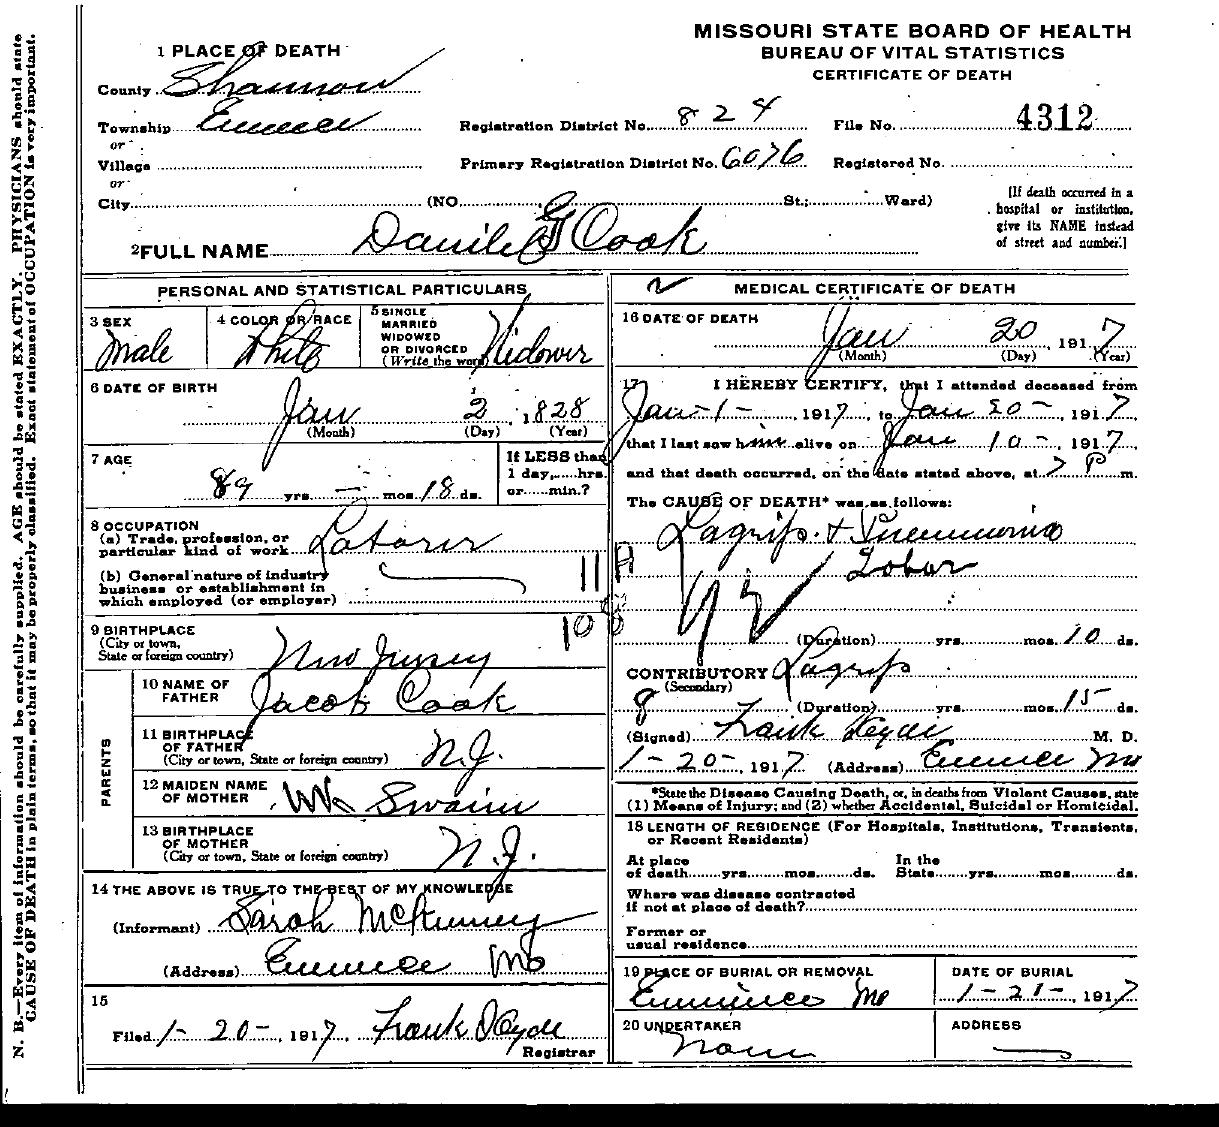 MISSOURI STATE BOARD OF HEALTH
BUREAU OF VITAL STATISTICS
CERTIFICATE OF DEATH
1 PLACE OF DEATH
County Shannon
Township Eminence
or
Village
or
City (NO. St.; Ward)
Registration District No. 824 File No. 4312
Primary Registration District No. 6076 Registered No.
[If death occurred in a
hospital or institution,
give its NAME instead
of street and number.]
2 FULL NAME Danile G Cook
PERSONAL AND STATISTICAL PARTICULARS
3 SEX
Male
4 COLOR OR RACE
White
5 SINGLE
MARRIED
WIDOWED
OR DIVORCED
(Write the word)
Widower
6 DATE OF BIRTH
Jan 2, 1828
(Month) (Day) (Year)
7 AGE
89 yrs. — mos. 18 ds.
If LESS than
1 day, hrs.
or min.?
8 OCCUPATION
(a) Trade, profession, or
particular kind of work Laborer
(b) General nature of industry
business or establishment in
which employed (or employer)
11
108
9 BIRTHPLACE
(City or town,
State or foreign country)
New Jersey
PARENTS
10 NAME OF
FATHER
Jacob Cook
11 BIRTHPLACE
OF FATHER
(City or town, State or foreign country)
N.J.
12 MAIDEN NAME
OF MOTHER
Swaim
13 BIRTHPLACE
OF MOTHER
(City or town, State or foreign country)
N.J.
14 THE ABOVE IS TRUE TO THE BEST OF MY KNOWLEDGE
(Informant) Sarah McKinney
(Address) Eminence Mo
15
Filed 1-20-, 1917, Frank Hyde
Registrar
MEDICAL CERTIFICATE OF DEATH
16 DATE OF DEATH
Jan 20, 1917
(Month) (Day) (Year)
17 I HEREBY CERTIFY, that I attended deceased from
Jan-1-, 1917, to Jan 20-, 1917,
that I last saw him alive on Jan 10-, 1917,
and that death occurred, on the date stated above, at 7 P m.
The CAUSE OF DEATH* was as follows:
Lagrip. + Pneumonia
Lobar
(Duration) yrs. mos. 10 ds.
CONTRIBUTORY Lagrip
(Secondary)
8 (Duration) yrs. mos. 15 ds.
(Signed) Frank Hyde M. D.
1-20-, 1917 (Address) Eminence Mo
*State the Disease Causing Death, or, in deaths from Violent Causes, state
(1) Means of Injury; and (2) whether Accidental, Suicidal or Homicidal.
18 LENGTH OF RESIDENCE (For Hospitals, Institutions, Transients,
or Recent Residents)
At place
of death yrs. mos. ds.
In the
State yrs. mos. ds.
Where was disease contracted
if not at place of death?
Former or
usual residence
19 PLACE OF BURIAL OR REMOVAL
Eminence Mo
DATE OF BURIAL
1-21-, 1917
20 UNDERTAKER
None
ADDRESS
N. B.—Every item of information should be carefully supplied. AGE should be stated EXACTLY. PHYSICIANS should state
CAUSE OF DEATH in plain terms, so that it may be properly classified. Exact statement of OCCUPATION is very important.